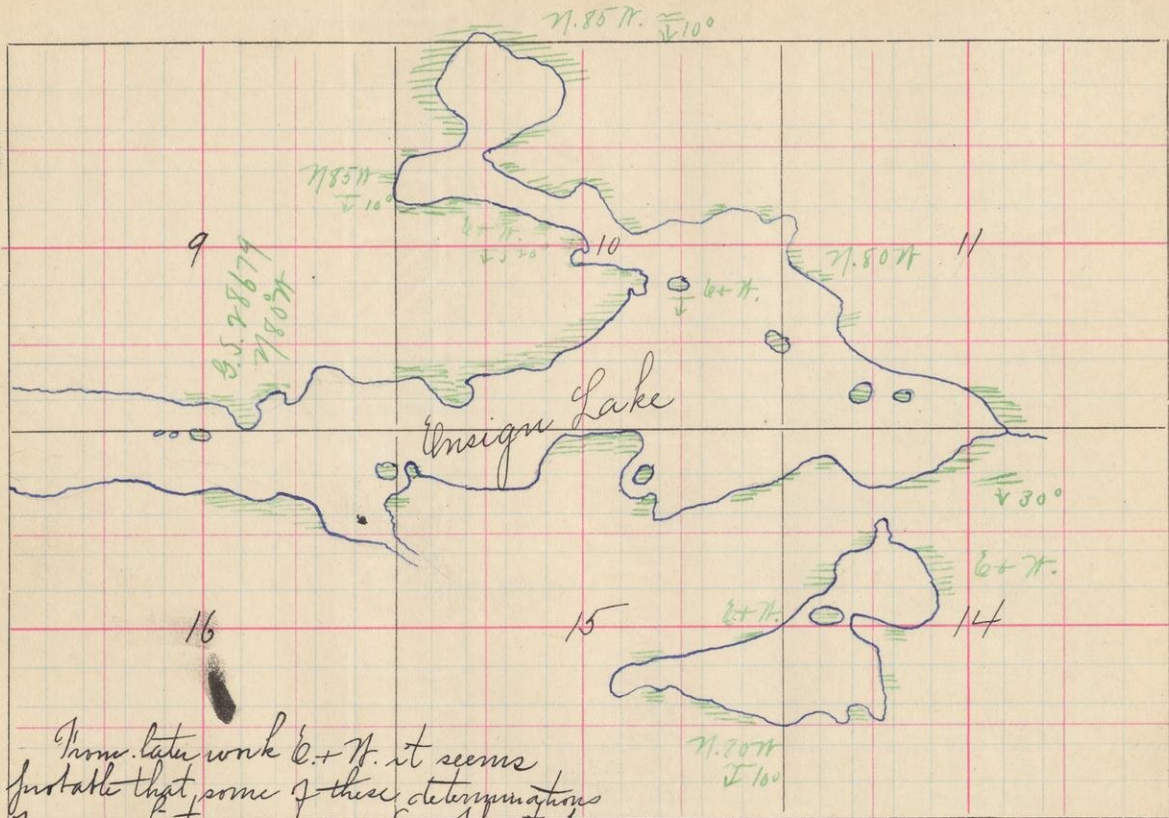 N. 85 W. 10°
N 85 W
10°
E + W.
9
10
11
N. 80 W
E + W.
G.S. 28679
N 80 W
Ensign Lake
30°
E + W.
E + W.
16
15
14
N. 20 W
10°
From later work E. + W. it seems
probable that some of these determinations